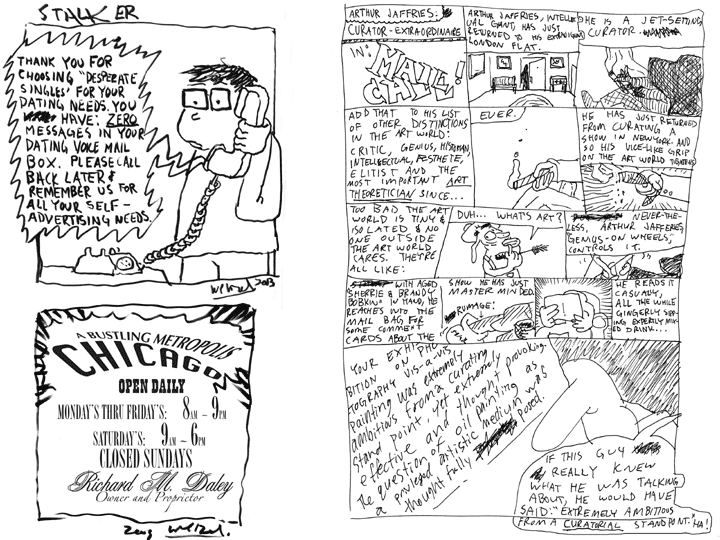 STALKER
THANK YOU FOR
CHOOSING "DESPERATE
SINGLES" FOR YOUR
DATING NEEDS. YOU
HAVE: ZERO
MESSAGES IN YOUR
DATING VOICE MAIL
BOX. PLEASE CALL
BACK LATER &
REMEMBER US FOR
ALL YOUR SELF-
ADVERTISING NEEDS.
2003
A BUSTLING METROPOLIS
CHICAGO
OPEN DAILY
MONDAY'S THRU FRIDAY'S: 8AM – 9PM
SATURDAY'S: 9AM – 6PM
CLOSED SUNDAYS
Richard M. Daley
Owner and Proprietor
2003
ARTHUR JAFFRIES:
CURATOR-EXTRAORDINAIRE
IN:
MAIL
CALL!
ARTHUR JAFFRIES, INTELLECT-
UAL GIANT, HAS JUST
RETURNED TO HIS
LONDON FLAT.
HE IS A JET-SETTING
CURATOR
ADD THAT TO HIS LIST
OF OTHER DISTINCTIONS
IN THE ART WORLD:
CRITIC, GENIUS, HISTORIAN
INTELLECTUAL, AESTHETE,
ELITIST AND THE
MOST IMPORTANT ART
THEORETICIAN SINCE...
EVER.
HE HAS JUST RETURNED
FROM CURATING A
SHOW IN NEW YORK AND
SO HIS VICE-LIKE GRIP
ON THE ART WORLD TIGHTENS
TOO BAD THE ART
WORLD IS TINY &
ISOLATED & NO
ONE OUTSIDE
THE ART WORLD
CARES. THEY'RE
ALL LIKE:
DUH... WHAT'S ART?
NEVER-THE-
LESS, ARTHUR JAFFERIES,
"GENIUS-ON WHEELS,"
CONTROLS IT.
WITH AGED
"SHERRIE & BRANDY
BOBKIN" IN HAND, HE
REACHES INTO THE
MAIL BAG FOR
SOME COMMENT
CARDS ABOUT THE
SHOW HE HAS JUST
MASTER MINDED.
RUMAGE:
HE READS IT
CASUALLY,
ALL THE WHILE
GINGERLY SIPP-
ING EXPERLY MIX-
ED DRINK...
YOUR EXHI-
BITION ON PHO-
TOGRAPHY VIS-A-VIS
PAINTING WAS EXTREMELY
AMBITIOUS FROM A CURATING
STAND POINT, YET EXTREMLY
EFFECTIVE AND THOUGHT PROVOKING.
THE QUESTION OF OIL PAINTING AS
A PRIVILEGED ARTISTIC MEDIUM WAS
THOUGHTFULLY POSED.
IF THIS GUY
REALLY KNEW
WHAT HE WAS TALKING
ABOUT, HE WOULD HAVE
SAID: "EXTREMELY AMBITIOUS
FROM A CURATORIAL STANDPOINT." HA!